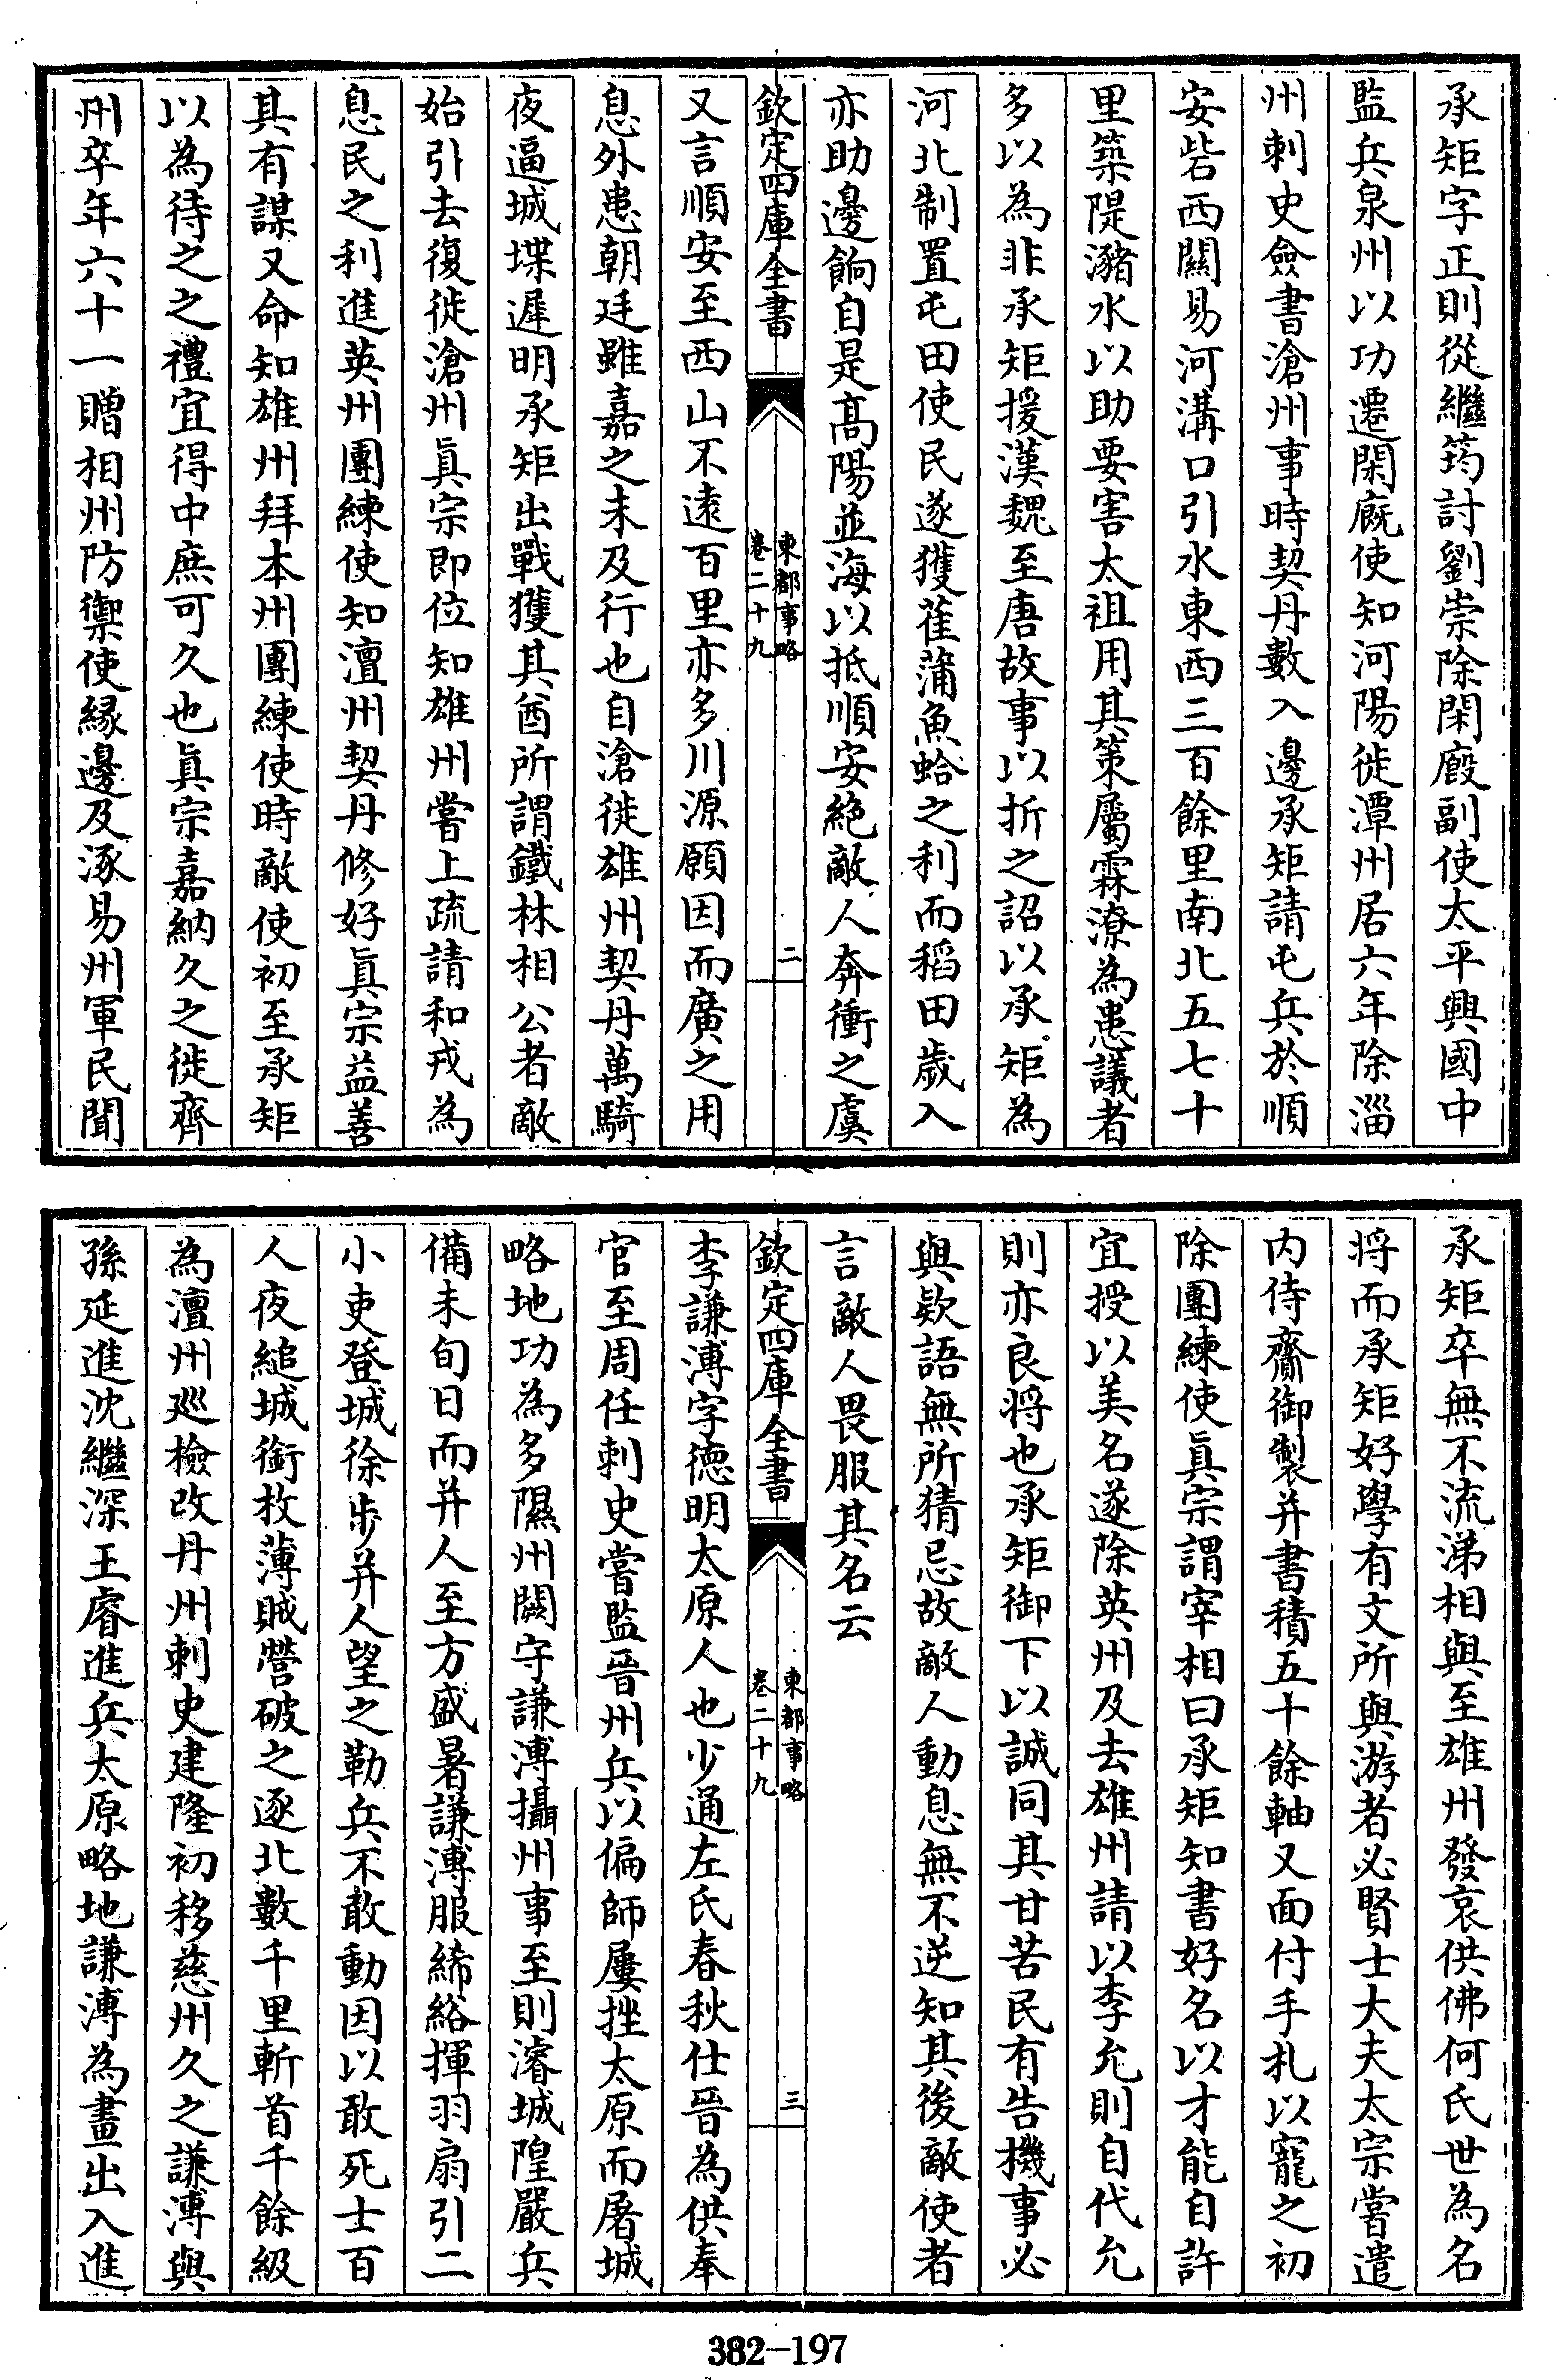 承矩字正則從繼筠討劉崇除閑廄副使太平興國中
監兵泉州以功遷閑廐使知河陽徙潭州居六年除淄
州刺史僉書滄州事時契丹數入邊承矩請屯兵於順
安砦西關易河溝口引水東西三百餘里南北五七十
里築隄瀦水以助要害太祖用其策屬霖潦為患議者
多以為非承矩援漢魏至唐故事以折之詔以承矩為
河北制置屯田使民遂獲萑蒲魚蛤之利而稻田歲入
亦助邊餉自是高陽並海以抵順安絶敵人奔衝之虞
欽定四庫全書
東都事略
卷二十九
二
又言順安至西山不遠百里亦多川源願因而廣之用
息外患朝廷雖嘉之未及行也自滄徙雄州契丹萬騎
夜逼城堞遲明承矩出戰獲其酋所謂鐵林相公者敵
始引去復徙滄州眞宗即位知雄州嘗上疏請和戎為
息民之利進英州團練使知澶州契丹修好眞宗益善
其有謀又命知雄州拜本州團練使時敵使初至承矩
以為待之之禮宜得中庶可久也眞宗嘉納久之徙齊
州卒年六十一贈相州防禦使縁邊及涿易州軍民聞
承矩卒無不流涕相與至雄州發哀供佛何氏世為名
将而承矩好學有文所與游者必賢士大夫太宗嘗遣
内侍齎御製并書積五十餘軸又面付手札以寵之初
除團練使眞宗謂宰相曰承矩知書好名以才能自許
宜授以美名遂除英州及去雄州請以李允則自代允
則亦良将也承矩御下以誠同其甘苦民有告機事必
與欵語無所猜忌故敵人動息無不逆知其後敵使者
言敵人畏服其名云
欽定四庫全書
東都事略
卷二十九
三
李謙溥字德明太原人也少通左氏春秋仕晉為供奉
官至周任刺史嘗監晉州兵以偏師屢挫太原而屠城
略地功為多隰州闕守謙溥攝州事至則濬城隍嚴兵
備未旬日而并人至方盛暑謙溥服絺綌揮羽扇引二
小吏登城徐步并人望之勒兵不敢動因以敢死士百
人夜縋城銜枚薄賊營破之逐北數千里斬首千餘級
為澶州廵檢改丹州刺史建隆初移慈州久之謙溥與
孫延進沈繼深王睿進兵太原略地謙溥為畫出入進
382-197